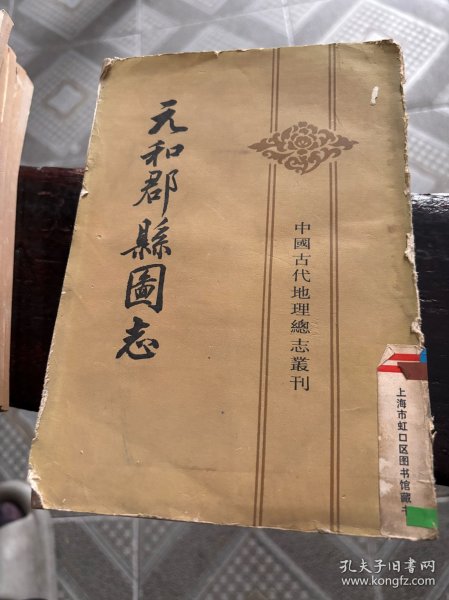 元和郡縣圖志
中國古代地理總志叢刊
上海市虹口区图书馆藏书
孔夫子旧书网
www.kongfz.com